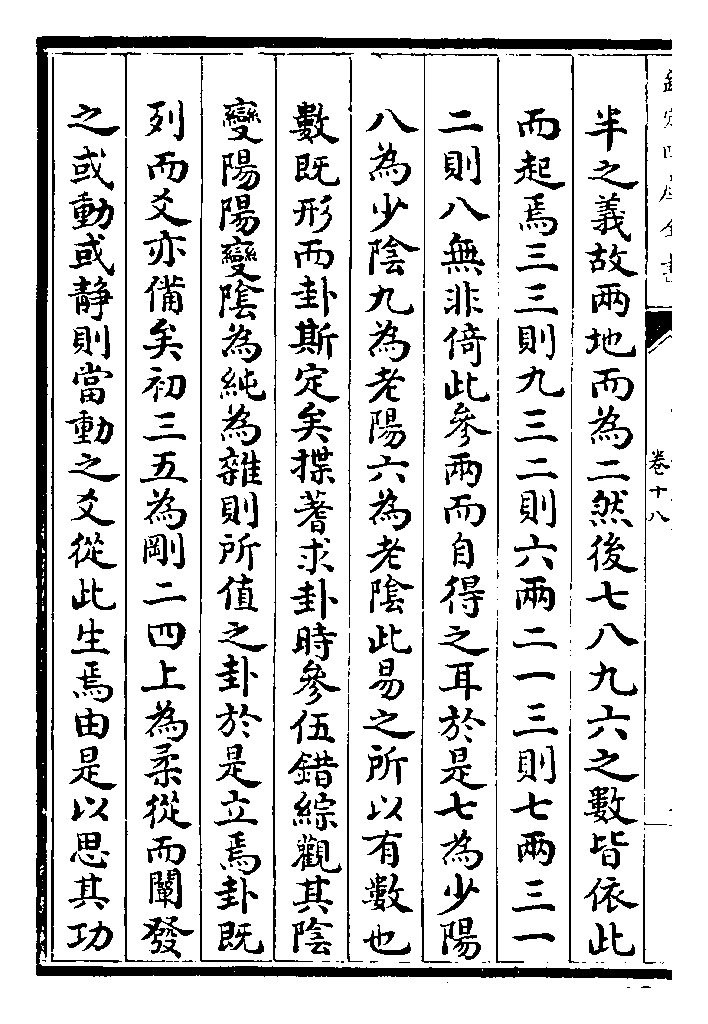 欽定四庫全書
卷十八
半之義故兩地而為二然後七八九六之數皆依此
而起焉三三則九三二則六兩二一三則七兩三一
二則八無非倚此參兩而自得之耳於是七為少陽
八為少陰九為老陽六為老陰此易之所以有數也
數既形而卦斯定矣揲蓍求卦時參伍錯綜觀其陰
變陽陽變陰為純為雜則所值之卦於是立焉卦既
列而爻亦備矣初三五為剛二四上為柔從而闡發
之或動或静則當動之爻從此生焉由是以思其功